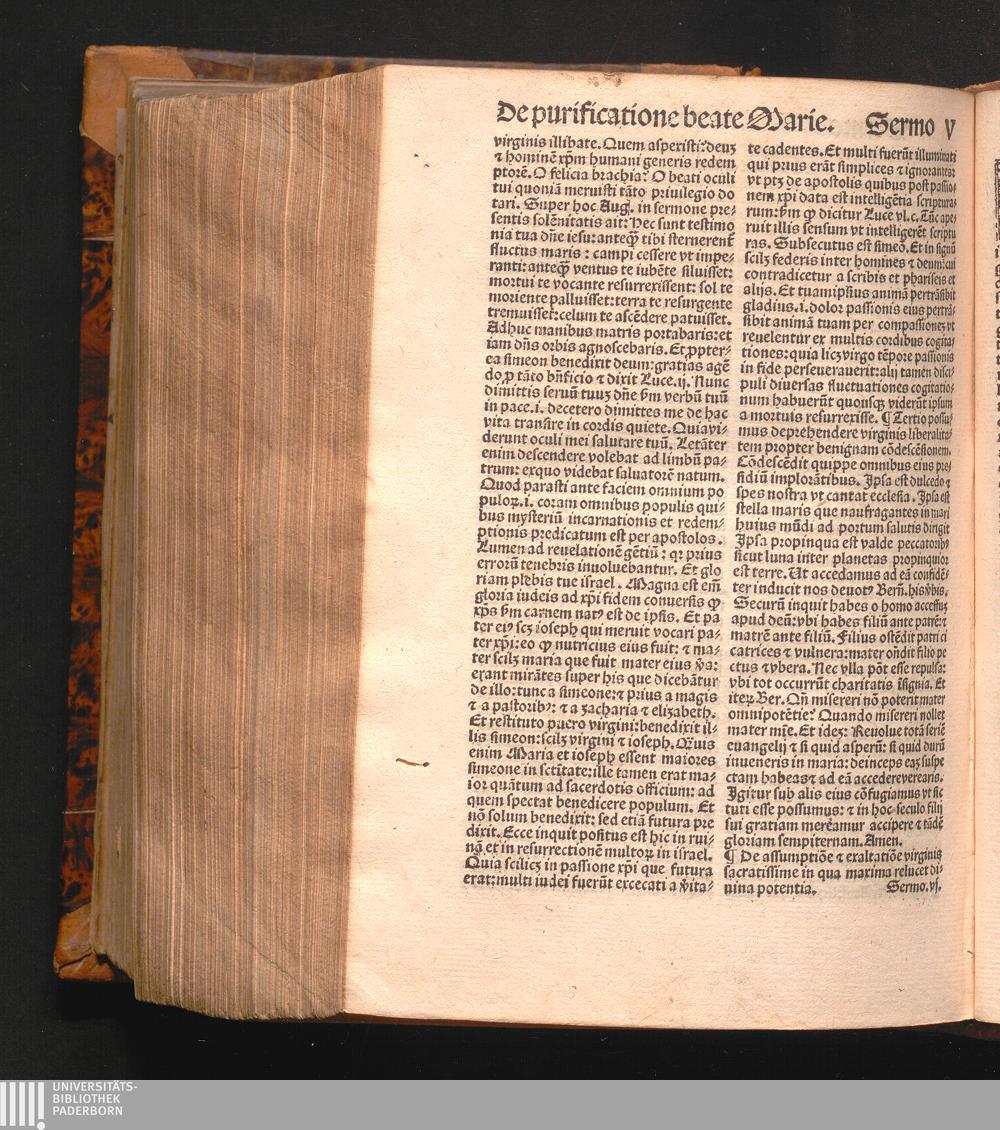 De purificatione beate Marie. Sermo V
virginis illibate. Quem asperisti: deuȝ
⁊ hominē xp̄m humani generis redem
ptorē. O felicia brachia: O beati oculi
tui quoniā meruisti tāto priuilegio do
tari. Super hoc Aug. in sermone pre⸗
sentis solēnitatis ait: Hec sunt testimo
nia tua dn̄e iesu: anteqȝ tibi sternerent̄
fluctus maris : campi cessere vt impe⸗
ranti: anteqȝ ventus te iubēte siluisset:
mortui te vocante resurrexissent: sol te
moriente palluisset: terra te resurgente
tremuisset: celum te ascēdere patuisset.
Adhuc manibus matris portabaris: et
iam dn̄s orbis agnoscebaris. Et ꝓpter⸗
ea simeon benedixit deum: gratias agē
do ꝓ tāto bn̄ficio ⁊ dixit Luce.ij. Nunc
dimittis seruū tuuȝ dn̄e ẜm verbū tuū
in pace.i. decetero dimittes me de hac
vita transire in cordis quiete. Quia vi⸗
derunt oculi mei salutare tuū. Letāter
enim descendere volebat ad limbū pa⸗
trum: exquo videbat saluatorē natum.
Quod parasti ante faciem omnium po
puloꝝ.i. coram omnibus populis qui⸗
bus mysteriū incarnationis et redem⸗
ptionis predicatum est per apostolos.
Lumen ad reuelationē gētiū : qꝛ prius
errorū tenebris inuoluebantur. Et glo
riam plebis tue israel. Magna est em̄
gloria iudeis ad xp̄i fidem conuersis ꝙ
xp̄s ẜm carnem natꝰ est de ipsis. Et pa
ter eiꝰ scȝ ioseph qui meruit vocari pa⸗
ter xp̄i: eo ꝙ nutricius eius fuit: ⁊ ma⸗
ter scilȝ maria que fuit mater eius v̄a:
erant mirātes super his que dicebātur
de illo: tunc a simeone: ⁊ prius a magis
⁊ a pastoribꝰ: ⁊ a zacharia ⁊ elizabeth.
Et restituto puero virgini: benedixit il⸗
lis simeon: scilȝ virgini ⁊ ioseph. Qȝuis
enim Maria et ioseph essent maiores
simeone in sctītate: ille tamen erat ma⸗
ior quātum ad sacerdotis officium: ad
quem spectat benedicere populum. Et
nō solum benedixit: sed etiā futura pre
dixit. Ecce inquit positus est hic in rui⸗
nā et in resurrectionē multoꝝ in israel.
Quia scilicȝ in passione xp̄i que futura
erat: multi iudei fuerūt excecati a v̄ita⸗
te cadentes. Et multi fuerūt illuminati
qui prius erāt simplices ⁊ ignorantes:
vt ptȝ de apostolis quibus post passio⸗
nem xp̄i data est intelligētia scriptura⸗
rum: ẜm ꝙ dicitur Luce vl.c. Tūc ape⸗
ruit illis sensum vt intelligerēt scriptu
ras. Subsecutus est simeō. Et in signū
scilȝ federis inter homines ⁊ deum: cui
contradicetur a scribis et phariseis et
alijs. Et tuam ip̄ius animā pertrāsibit
gladius.i. dolor passionis eius pertrā⸗
sibit animā tuam per compassioneȝ vt
reuelentur ex multis cordibus cogita⸗
tiones: quia licȝ virgo tēpore passionis
in fide perseuerauerit: alij tamen disci⸗
puli diuersas fluctuationes cogitatio⸗
num habuerūt quousqȝ viderūt ipsum
a mortuis resurrexisse. ¶ Tertio possu⸗
mus deprehendere virginis liberalita⸗
tem propter benignam cōdescēsionem.
Cōdescēdit quippe omnibus eius pre⸗
sidiū implorātibus. Ipsa est dulcedo ⁊
spes nostra vt cantat ecclesia. Ipsa est
stella maris que naufragantes in mari
huius mūdi ad portum salutis dirigit
Ipsa propinqua est valde peccatoribꝰ
sicut luna inter planetas propinquior
est terre. Ut accedamus ad eā confidē⸗
ter inducit nos deuotꝰ Bern̄. his v̄bis.
Securū inquit habes o homo accessuȝ
apud deū: vbi habes filiū ante patrē: ⁊
matrē ante filiū. Filius ostēdit patri ci
catrices ⁊ vulnera: mater on̄dit filio pe
ctus ⁊ vbera. Nec vlla pōt esse repulsa:
vbi tot occurrūt charitatis īsignia. Et
iteꝝ Ber. Qn̄ misereri nō poterit mater
omnipotētie: Quando misereri nollet
mater mīe. Et ideȝ: Reuolue totā seriē
euangelij ⁊ si quid asperū: si quid durū
inueneris in maria: deinceps eaȝ suspe
ctam habeas ⁊ ad eā accedere verearis.
Igitur sub alis eius cōfugiamus vt sic
tuti esse possumus: ⁊ in hoc seculo filij
sui gratiam mereamur accipere ⁊ tādē
gloriam sempiternam. Amen.
¶ De assumptiōe ⁊ exaltatiōe virginis
sacratissime in qua maxima relucet di⸗
uina potentia. Sermo.vj.
UNIVERSITÄTS-
BIBLIOTHEK
PADERBORN